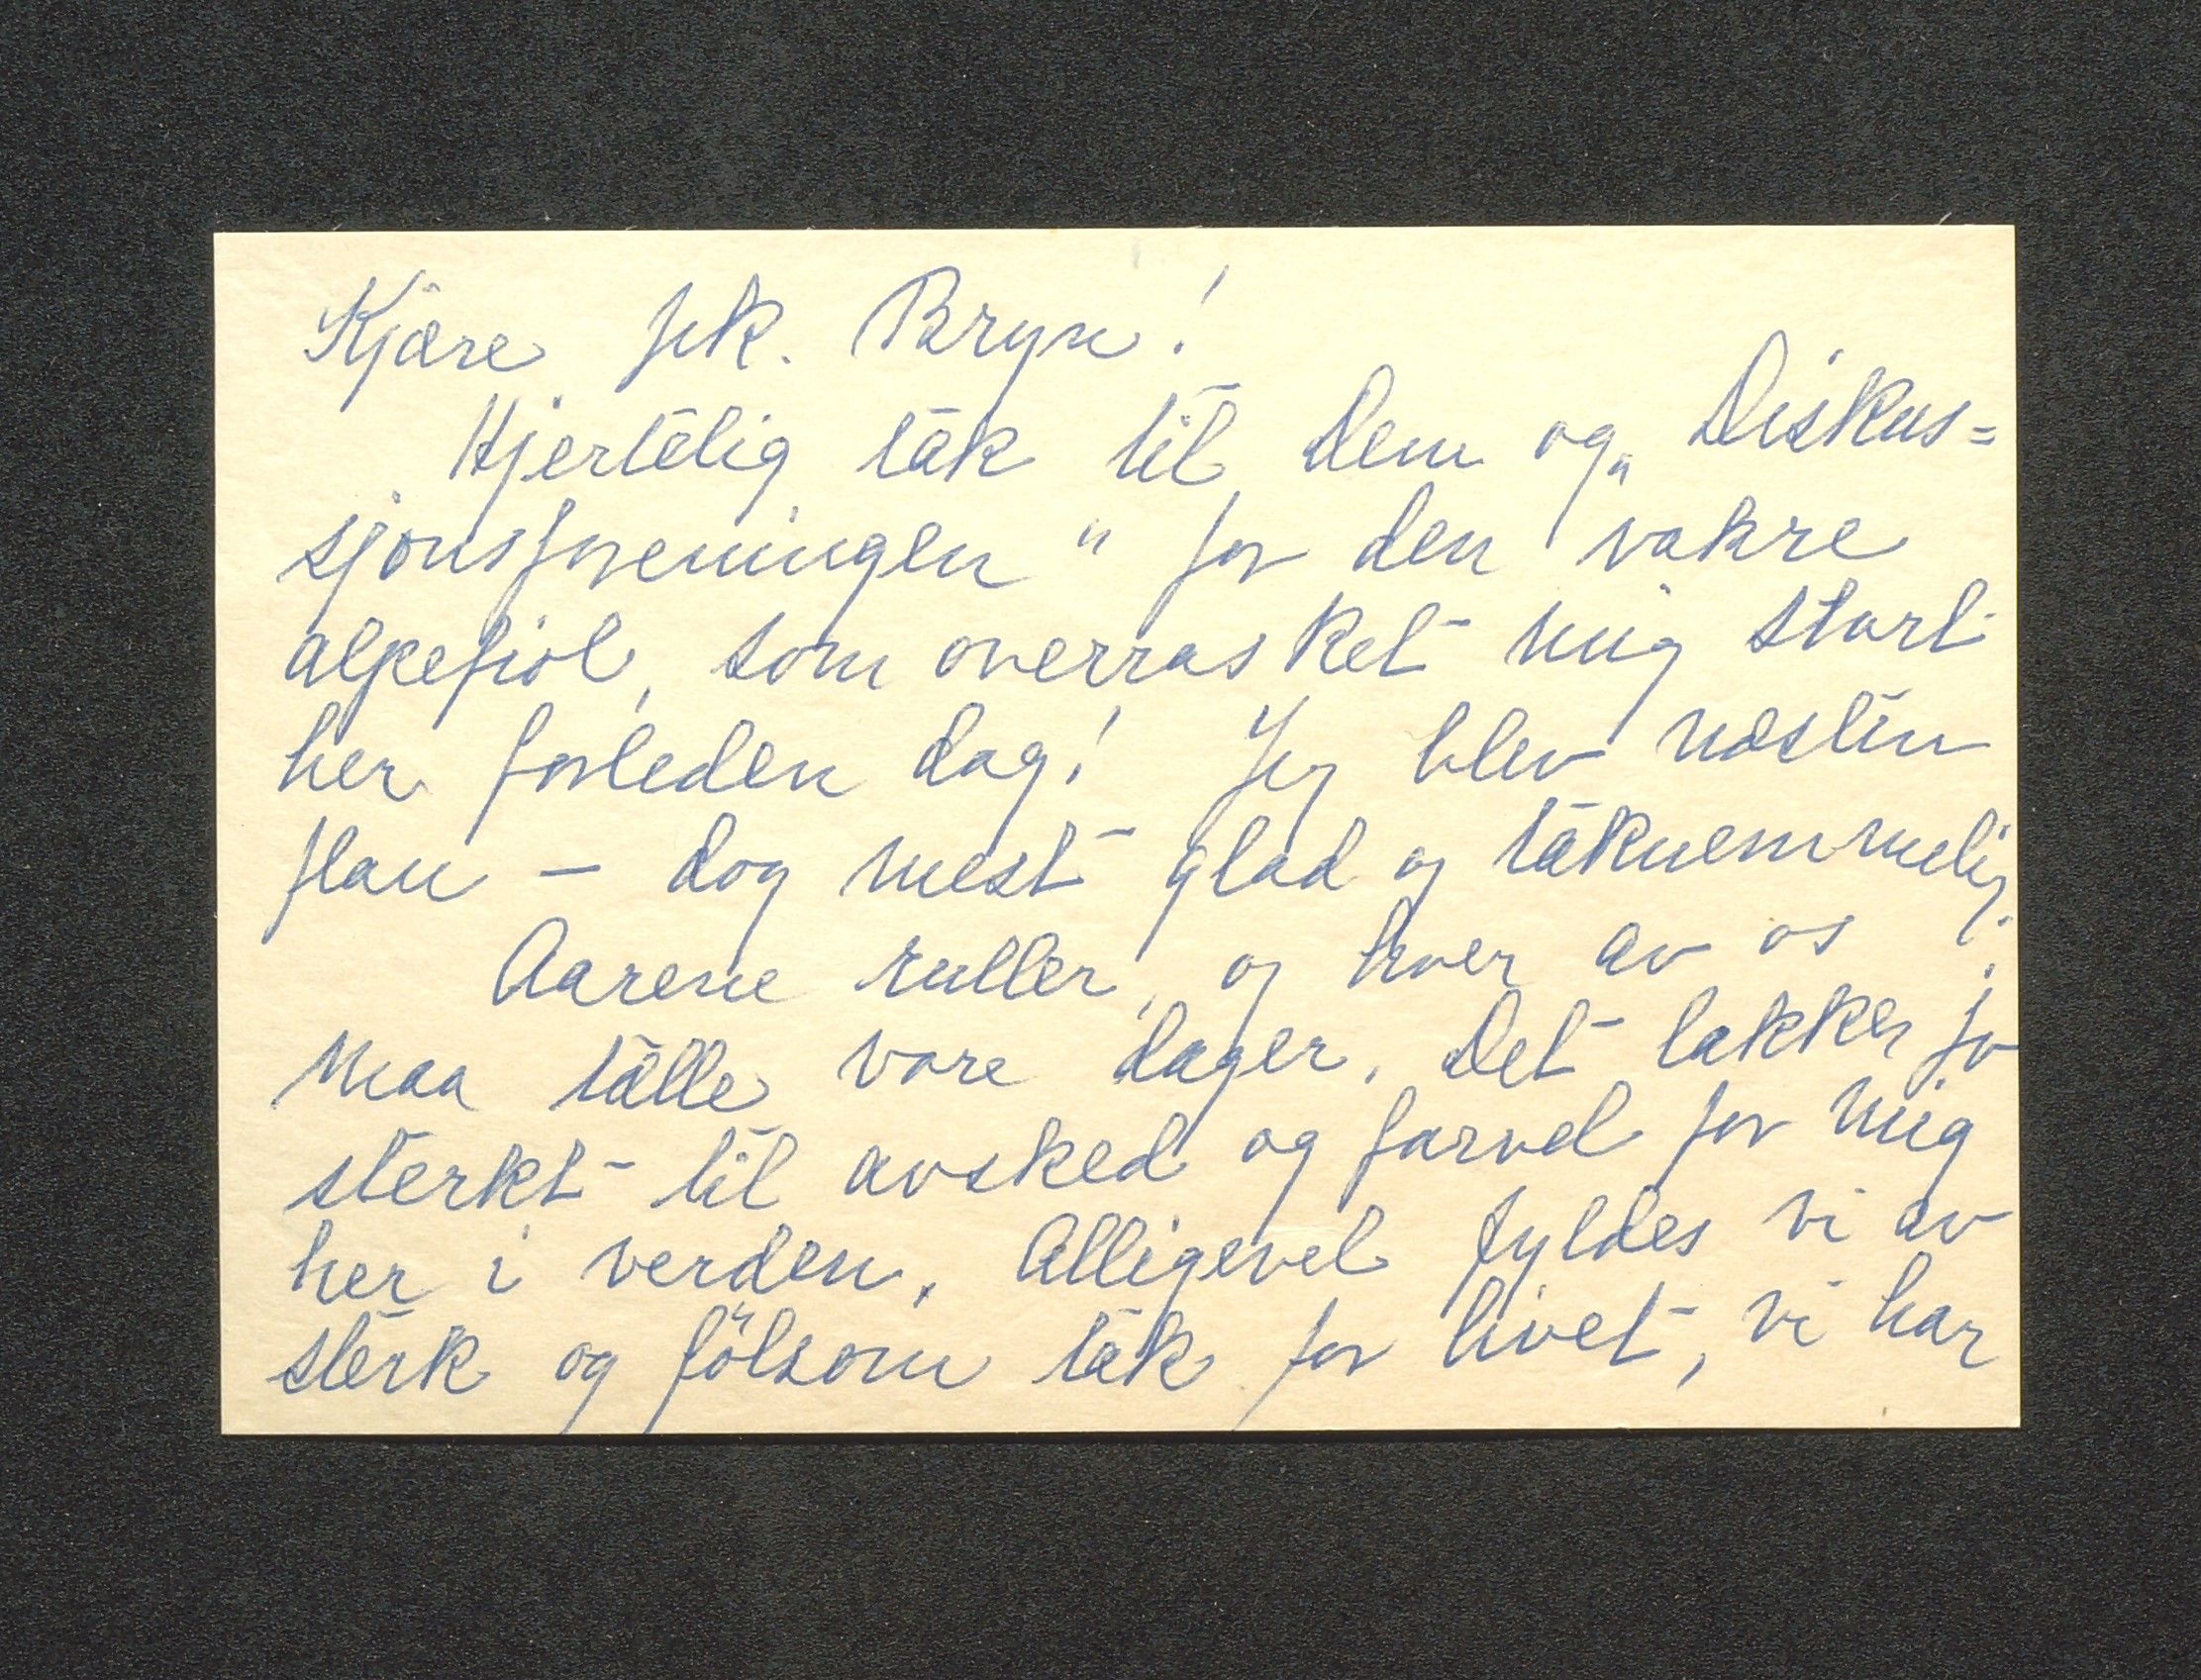 Kjære frk. Bryn!
Hjertelig tak til Dem og „Diskus=
sjonsforeningen" for den vakre
alpefiol, som overrasket mig stort
her forleden dag! Jeg blev næsten
flau – dog mest glad og taknemmelig.
Aarene ruller, og hver av os
maa tælle vore dager. Det lakker jo
sterkt til avsked og farvel for mig
her i verden. Alligevel fyldes vi av
sterk og fölsom tak for livet, vi har